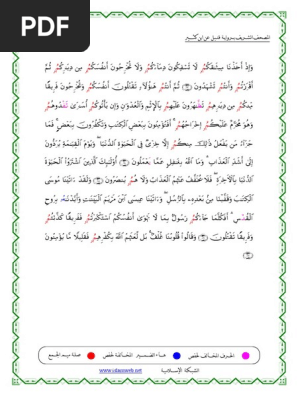 PDF
المصحف الشريف برواية قنبل عن ابن كثير
وَإِذْ أَخَذْنَا مِيثَٰقَكُمُۥ لَا تَسْفِكُونَ دِمَآءَكُمُۥ وَلَا تُخْرِجُونَ أَنفُسَكُمُۥ مِن دِيَٰرِكُمُۥ ثُمَّ
أَقْرَرْتُمُۥ وَأَنتُمُۥ تَشْهَدُونَ ثُمَّ أَنتُمُۥ هَٰٓؤُلَآءِ تَقْتُلُونَ أَنفُسَكُمُۥ وَتُخْرِجُونَ فَرِيقًا
مِنكُمُۥ مِن دِيَٰرِهِمُۥ تَظَّٰهَرُونَ عَلَيْهِمُۥ بِٱلْإِثْمِ وَٱلْعُدْوَٰنِ وَإِن يَأْتُوكُمُۥ أُسَٰرَىٰ تَفْدُوهُمُۥ
وَهْوَ مُحَرَّمٌ عَلَيْكُمُۥ إِخْرَاجُهُمُۥ أَفَتُؤْمِنُونَ بِبَعْضِ ٱلْكِتَٰبِ وَتَكْفُرُونَ بِبَعْضٍ فَمَا
جَزَآءُ مَن يَفْعَلُ ذَٰلِكَ مِنكُمُۥ إِلَّا خِزْيٌ فِي ٱلْحَيَوٰةِ ٱلدُّنْيَا وَيَوْمَ ٱلْقِيَٰمَةِ يُرَدُّونَ
إِلَىٰٓ أَشَدِّ ٱلْعَذَابِ وَمَا ٱللَّهُ بِغَٰفِلٍ عَمَّا يَعْمَلُونَ أُوْلَٰٓئِكَ ٱلَّذِينَ ٱشْتَرَوُاْ ٱلْحَيَوٰةَ
ٱلدُّنْيَا بِٱلْأٓخِرَةِ فَلَا يُخَفَّفُ عَنْهُمُ ٱلْعَذَابُ وَلَا هُمُۥ يُنصَرُونَ وَلَقَدْ ءَاتَيْنَا مُوسَى
ٱلْكِتَٰبَ وَقَفَّيْنَا مِنۢ بَعْدِهِۦ بِٱلرُّسُلِ وَءَاتَيْنَا عِيسَى ٱبْنَ مَرْيَمَ ٱلْبَيِّنَٰتِ وَأَيَّدْنَٰهُۥ بِرُوحِ
ٱلْقُدْسِ أَفَكُلَّمَا جَآءَكُمُۥ رَسُولٌۢ بِمَا لَا تَهْوَىٰٓ أَنفُسُكُمُ ٱسْتَكْبَرْتُمُۥ فَفَرِيقًا كَذَّبْتُمُۥ
وَفَرِيقًا تَقْتُلُونَ وَقَالُواْ قُلُوبُنَا غُلْفٌۢ بَل لَّعَنَهُمُ ٱللَّهُ بِكُفْرِهِمُۥ فَقَلِيلًا مَّا يُؤْمِنُونَ
الحرف المخالف لحفص هاء الضمير المخالفة لحفص صلة ميم الجمع
الشبكة الإسلامية www.islamweb.net